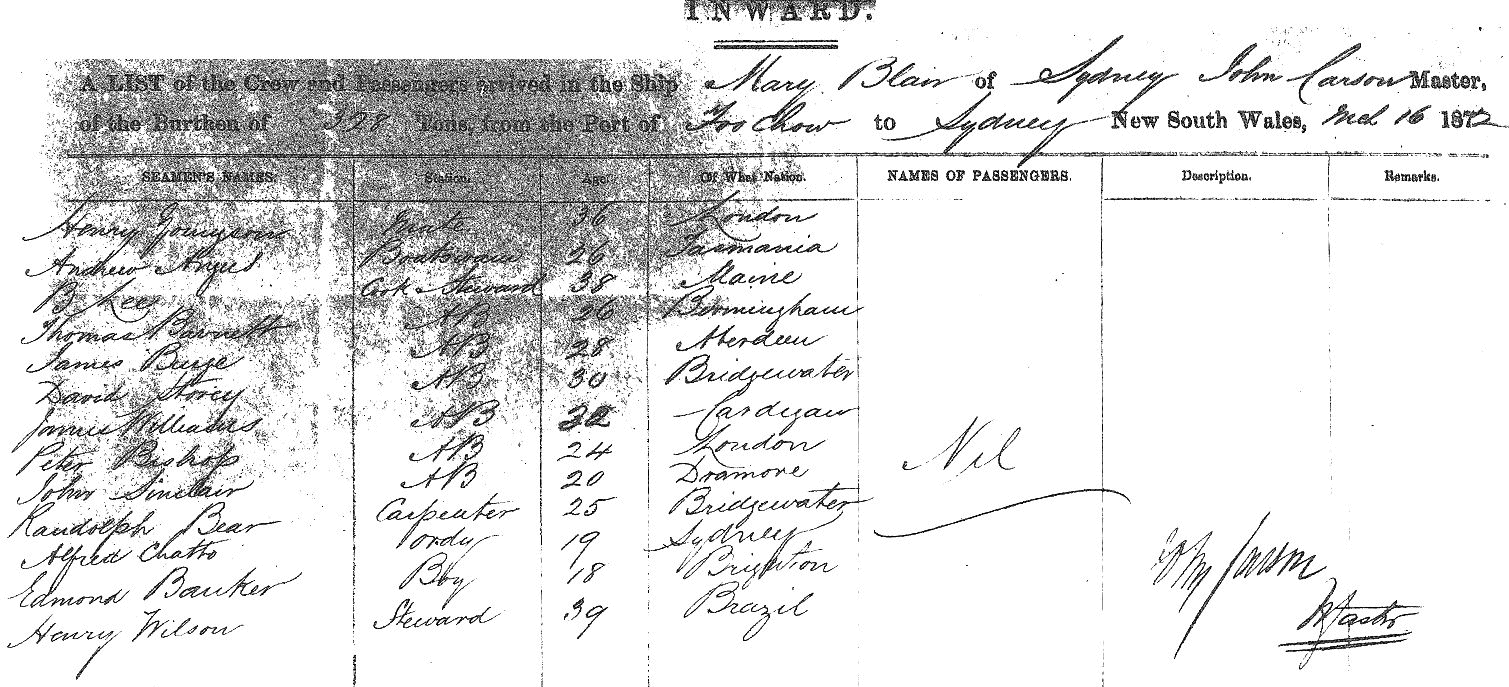 INWARD.
A LIST of the Crew and Passengers arrived in the Ship Mary Blair of Sydney John Carson Master,
of the Burthen of 328 Tons, from the Port of Foo Chow to Sydney New South Wales, 16 1872
SEAMEN'S NAMES. Station. Age. Of What Nation. NAMES OF PASSENGERS. Description. Remarks.
Henry Mate 36 London
Andrew Angus Boatswain 26 Tasmania
B Lees Cook Steward 38 Maine
Thomas Barnett AB 26 Birmingham
James AB 28 Aberdeen
David Storey AB 30 Bridgewater
James Williams AB 32 Cardigan
Peter Bishop AB 24 London Nil
John Sinclair AB 20 Dramore
Randolph Bear Carpenter 25 Bridgewater
Alfred Chatto ordy 19 Sydney
Edmond Banker Boy 18 Brighton Jhn Carson
Henry Wilson Steward 39 Brazil Master